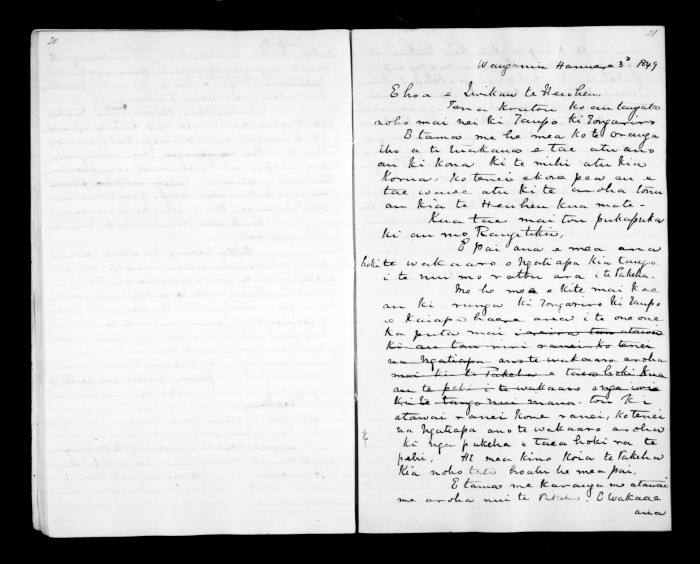 20
21
Hanuere 3d. 1849
E hoa e Iwikau te Heuheu.
Tena koutou ko au tangata
noho mai nei ki Taupo ki Tongariro
E tama me he mea ko te oranga
iho a te e tae atu ano
au ki kona ki te mihi atu kia
Korua, ko tenei ekore pea au e
tae wawe atu ki te aroha tonu
au kia te Heuheu kua mate -
Kua tae mai tou pukapuka
ki au mo Rangitikei,
E pai ana e mea ana
hoki te wakaaro o Ngatiapa kia tango
i te nui mo ratou ara i te Pakeha.
Me he mea e kite mai koe
au ki runga ki Tongariro ki Taupo
e Kaiapo haere ana i te oneone
ka puta mai i reira tau atawai
ki au tau riri ranei ko tenei
na Ngatiapa ano te wakaaro aroha
mai ki te Pakeha e taea hoki Kua
au te pehi i te wakaaro o nga iwi
ki te tango nui mana. tou ki
atawai ranei Kore ranei, ko tenei
na Ngatiapa ano te wakaaro aroha
ki nga pakeha e taea hoki ra te
pehi, He mea kino koia te Pakeha
kia noho tata hoahu he mea pai,
E tama me karanga me atawai
me aroha nui te Pakeha. E wakaae
ana